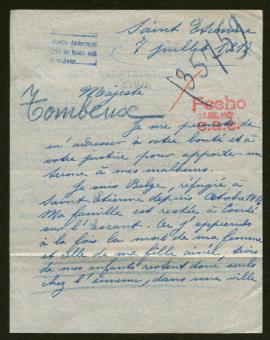 Saint Etienne
7 juillet
Majesté
Tombeux
Fecho
Je me permets de
m'adresser à votre bonté et à
votre justice pour apporter un
terme à mes malheurs.
Je suis Belge, réfugié à
Saint Etienne depuis Octobre
Ma famille est restée à Condé
sur l'Escaut. Or j'apprends
à la fois la mort de ma femme
et celle de ma fille aînée, trois
de mes enfants restent donc seuls
chez l'ennemi, dans une ville